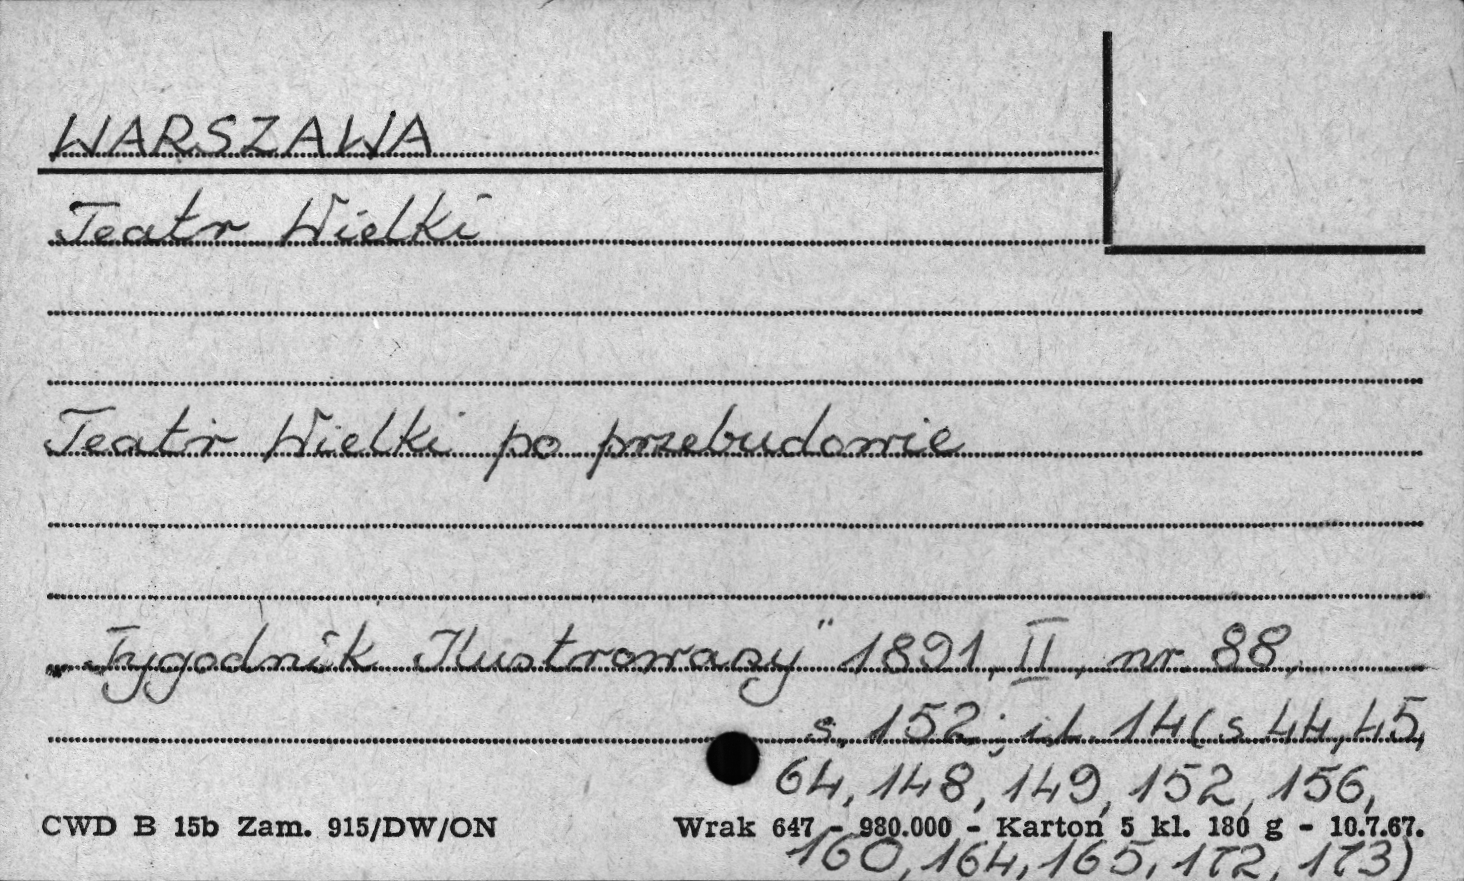 WARSZAWA
Teatr Wielki
Teatr Wielki po przebudowie
„Tygodnik Ilustrowany" 1891, II, nr. 88,
s. 152; il. 14 (s 44, 45,
64, 148, 149, 152, 156,
CWD B 15b Zam. 915/DW/ON Wrak 647 - 980.000 - Karton 5 kl. 180 g - 10.7.67.
160, 164, 165, 172, 173)